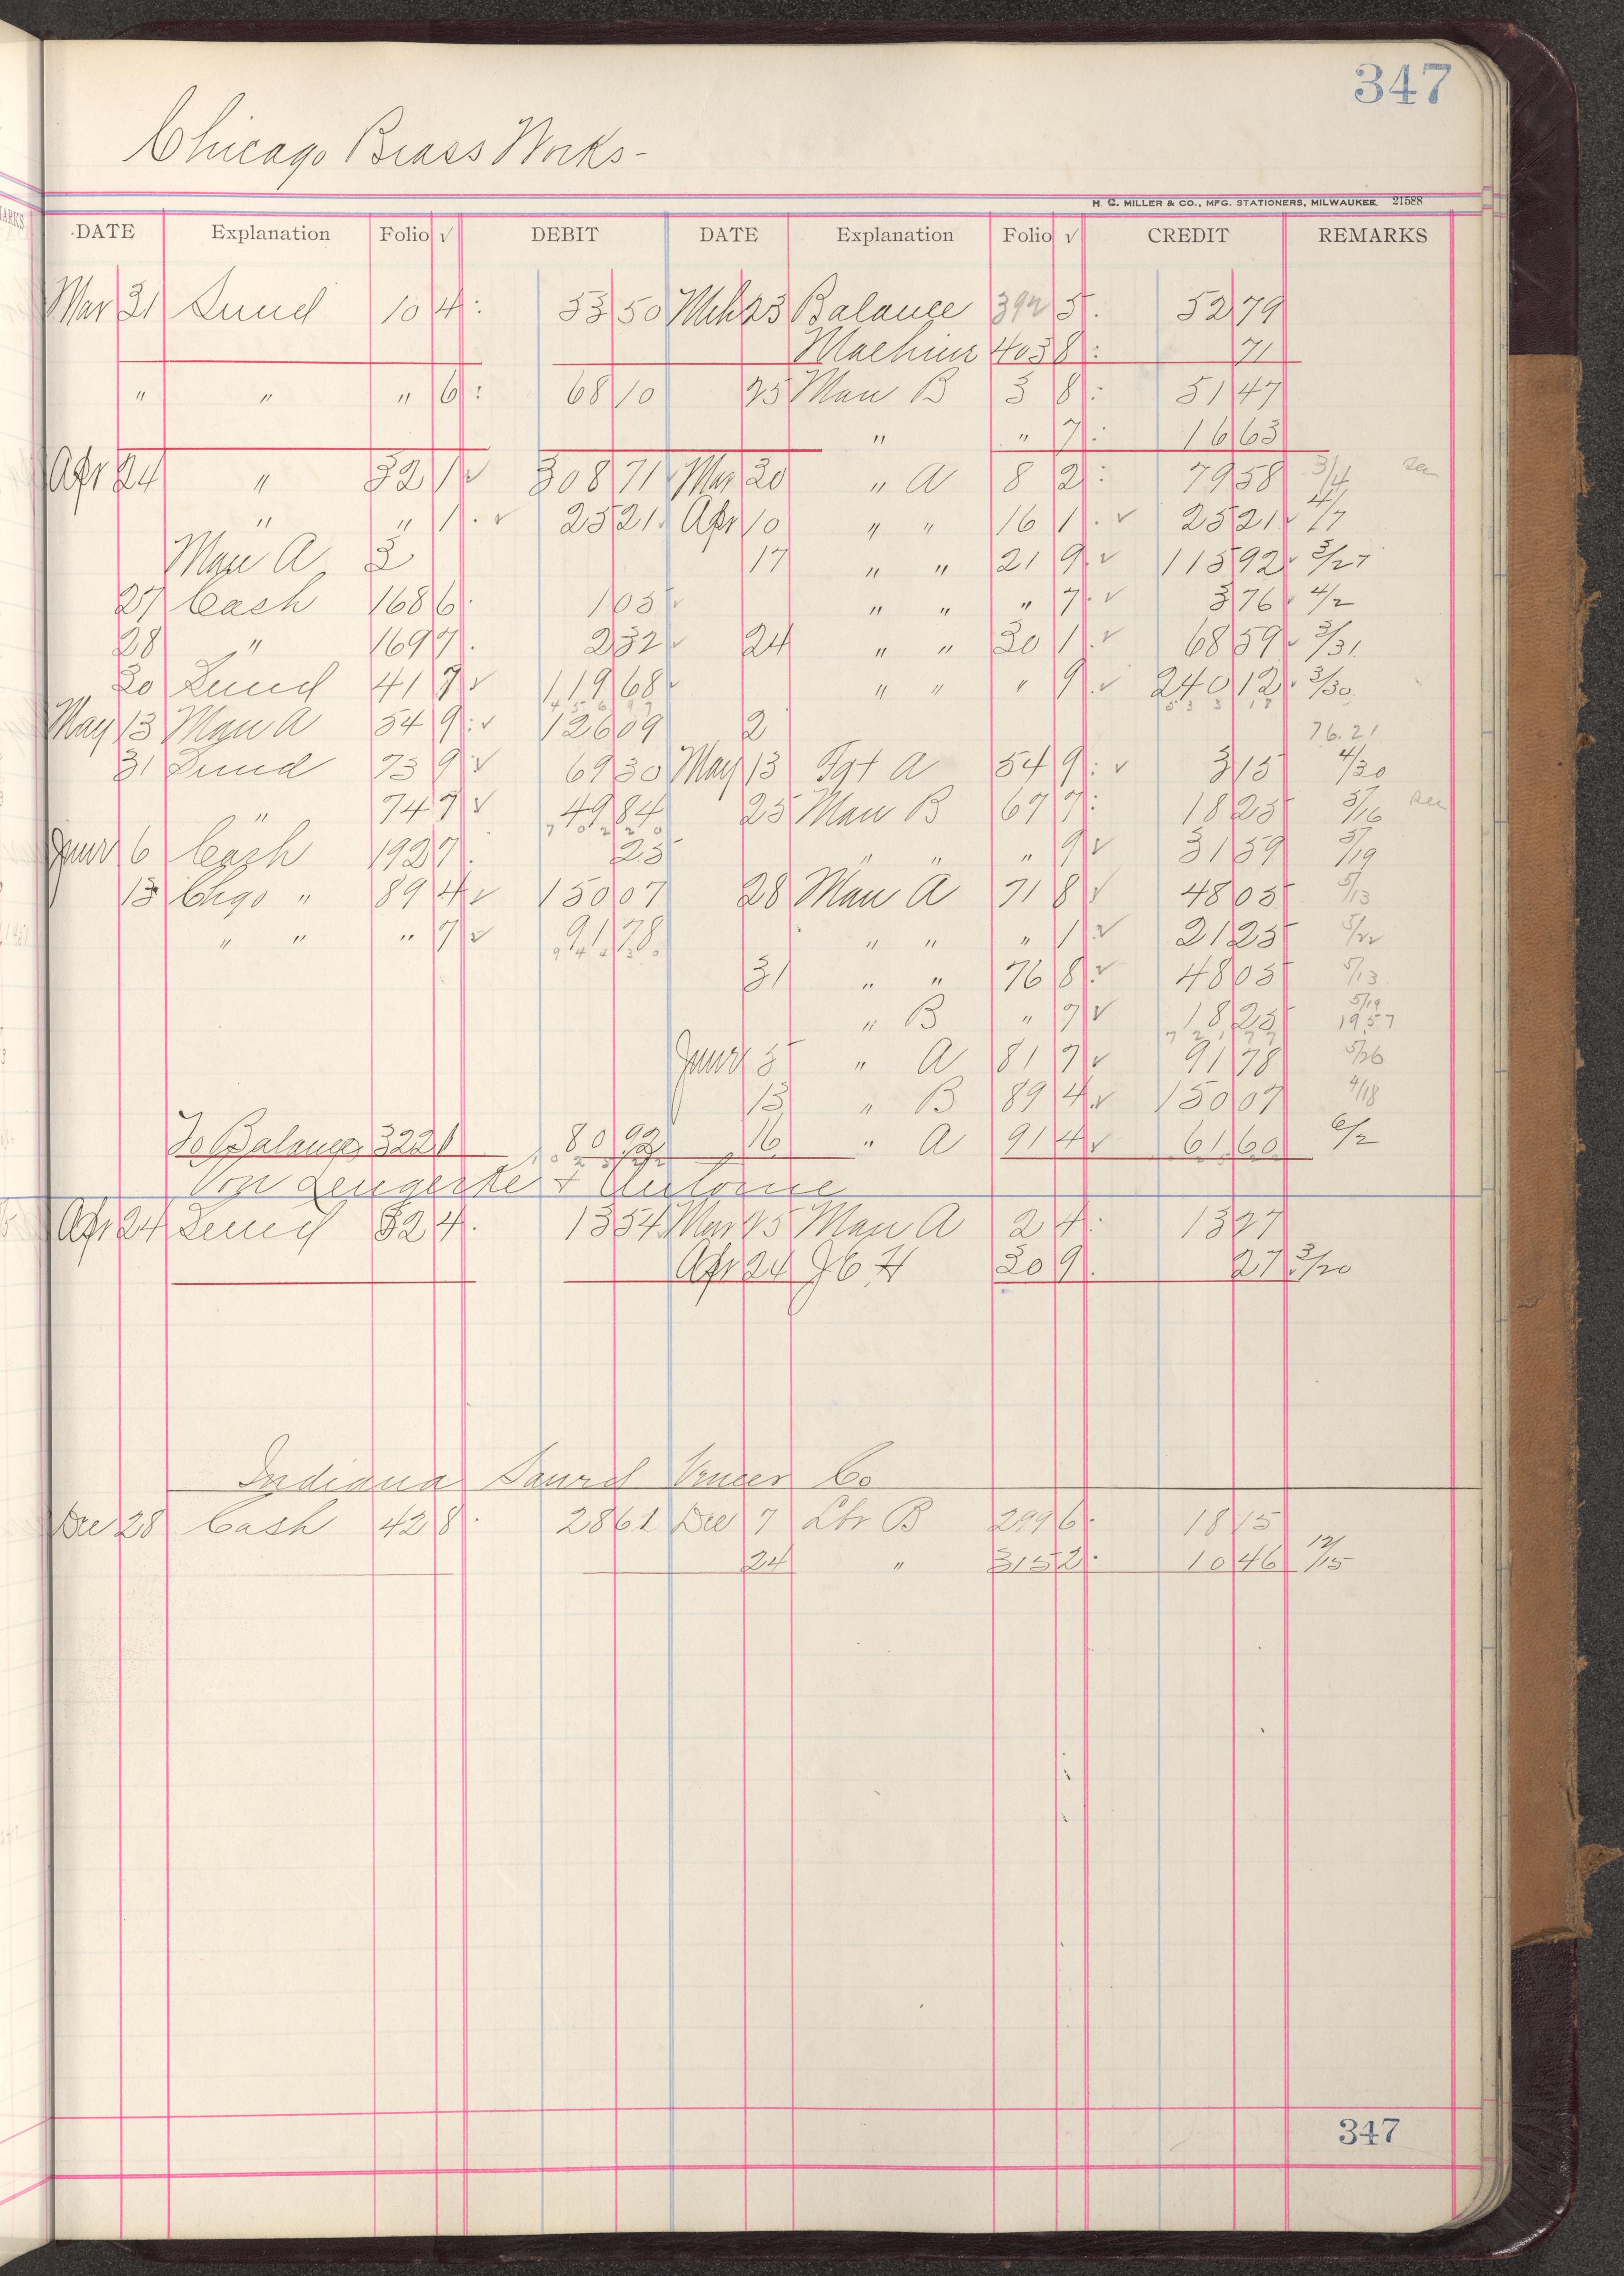 347
Chicago Brass Works-
H. G. MILLER & CO., MFG. STATIONERS, MILWAUKEE 21588
DATE Explanation Folio √ DEBIT DATE Explanation Folio √ CREDIT REMARKS
Mar 31 Sund 10 4 53 50 Mch 23 Balance 392 5 52 79
Machine 403 8 71
" " " 6 68 10 25 Man B 3 8 51 47
" " 7 16 63
Apr 24 " 32 1 308 71 Mar 30 " A 8 2 79 58 3/4
" " 1 √ 25 21 Apr 10 " " 16 1 √ 25 21 4/7
Man A 3 17 " " 21 9 √ 115 92 3/27
27 Cash 168 6 1 03 " " " 7 √ 3 76 4/2
28 " 169 7 2 32 24 " " 30 1 √ 68 59 3/31
30 Sund 41 9 √ 119 68 " " " 9 √ 240 12 3/30
May 13 Man A 54 9 √ 126 09 2 76.21
31 Sund 73 9 √ 69 30 May 13 Frt A 54 9 √ 3 15 4/30
" 74 7 √ 49 84 25 Man B 67 7 18 25 5/16
June 6 Cash 192 7 25 " " " 9 √ 31 59 5/19
13 Chgo " 89 4 √ 150 07 28 Man A 71 8 √ 48 05 5/13
" " " 7 √ 91 78 " " " 1 √ 21 25 5/22
31 " " 76 8 √ 48 05 5/13
" B " 7 √ 18 25 5/19
19 57
June 5 " A 81 7 √ 91 78 5/26
13 " B 89 4 √ 150 07 4/18
To Balance 322 1 80 92 16 " A 91 4 √ 61 60 6/2
Von Lengerke & Antoine
Apr 24 Sund 32 4 13 54 Mar 25 Man A 2 4 13 27
Apr 24 J6 H 30 9 27 3/20
Indiana Sawed Veneer Co
Dec 28 Cash 42 8 28 61 Dec 7 Lbr B 299 6 18 15
24 " 315 2 10 46 12/15
347